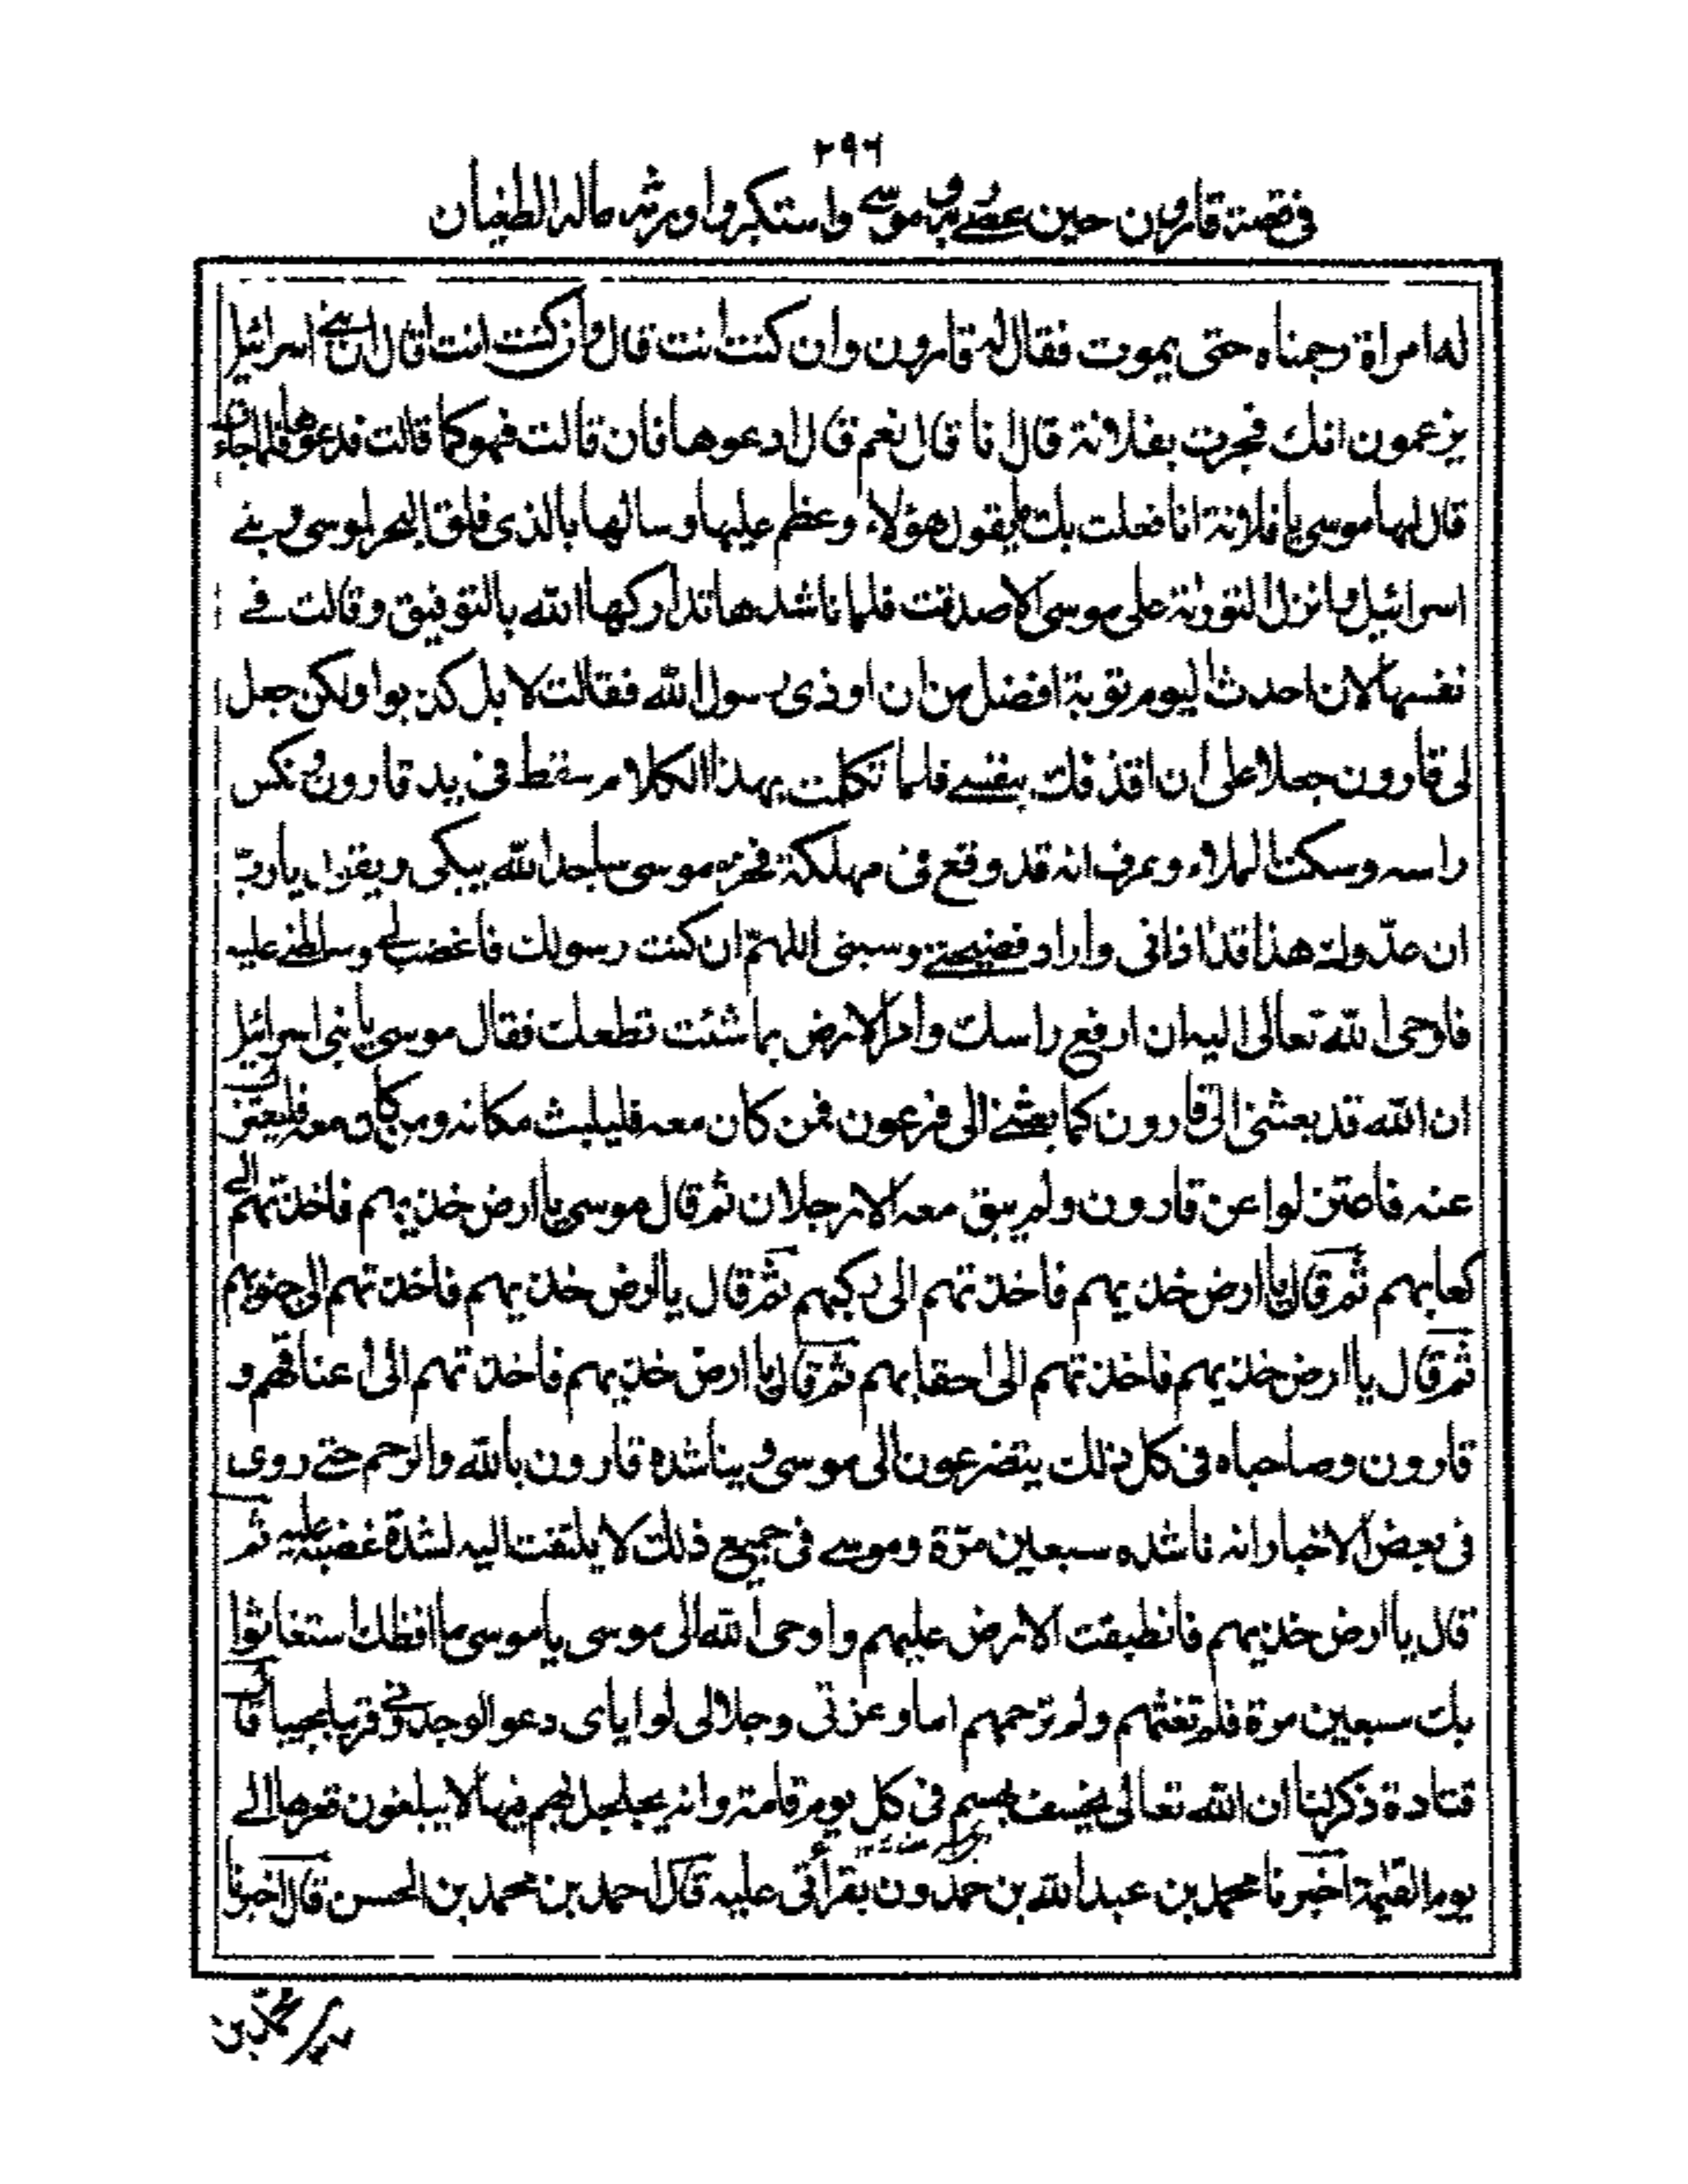 ٢٩٦
في قصة قارون حين عصى موسى واستكبر واورثه ماله الطغيان
له امراة رجمناه حتى يموت فقال له قارون وان كنت انت قال وان كنت انت قال ان بنى اسرائيل
يزعمون انك فجرت بفلانة قال انا قال نعم قال ادعوها فان قالت فهو كما قالت فدعوها فلما جاءت
قال لها موسى يا فلانة انا فعلت بك ما يقول هؤلاء وعظم عليها وسالها بالذى فلق البحر لموسى وبنى
اسرائيل وانزل التورٰية على موسى الا صدقت فلما ناشدها تداركها الله بالتوفيق وقالت فے
نفسها لان احدث اليوم توبة افضل من ان اوذى رسول الله فقالت لا بل كذبوا ولكن جعل
لى قارون جعلا على ان اقذفك بنفسى فلما تكلمت بهذا الكلام سقط فى يد قارون ونكس
راسه وسكت الملاء وعرف انه قد وقع فى مهلكة فخر موسى ساجدا لله يبكى ويقول يا ربّ
ان عدّوك هذا قد اٰذانى واراد فضيحتى وسبنى اللهمّ ان كنت رسولك فاغضب لى وسلطنى عليه
فاوحى الله تعالى اليه ان ارفع راسك وامر الارض بما شئت تطعك فقال موسى يا بنى اسرائيل
ان الله قد بعثنى الى قارون كما بعثنى الى فرعون فمن كان معه فليلبث مكانه ومن كان معى فليعتزل
عنه فاعتزلوا عن قارون ولم يبق معه الا رجلان ثم قال موسى يا ارض خذيهم فاخذتهم الى
كعابهم ثم قال يا ارض خذيهم فاخذتهم الى ركبهم ثم قال يا ارض خذيهم فاخذتهم الى جنوبهم
ثم قال يا ارض خذيهم فاخذتهم الى احقابهم ثم قال يا ارض خذيهم فاخذتهم الى اعناقهم و
قارون وصاحباه فى كل ذلك يتضرعون الى موسى ويناشده قارون بالله والرحم حتى روى
فى بعض الاخبار انه ناشده سبعين مرّة وموسى فى جميع ذلك لا يلتفت اليه لشدة غضبه عليه ثم
قال يا ارض خذيهم فانطبقت الارض عليهم واوحى الله الى موسى يا موسى ما افظك استغاثوا
بك سبعين مرة فلم تغثهم ولم ترحمهم اما وعزتى وجلالى لو اياى دعوا لوجدونى قريبا مجيبا قال
قتادة ذكر لنا ان الله تعالى يخسف بهم فى كل يوم قامة وانه يجلجل بهم فيها لا يبلغون قعرها الى
يوم القيٰمة اخبرنا محمد بن عبد الله بن حمدون بقرأتى عليه قال احمد بن محمد بن الحسن قال اخبرنا
محمد بن